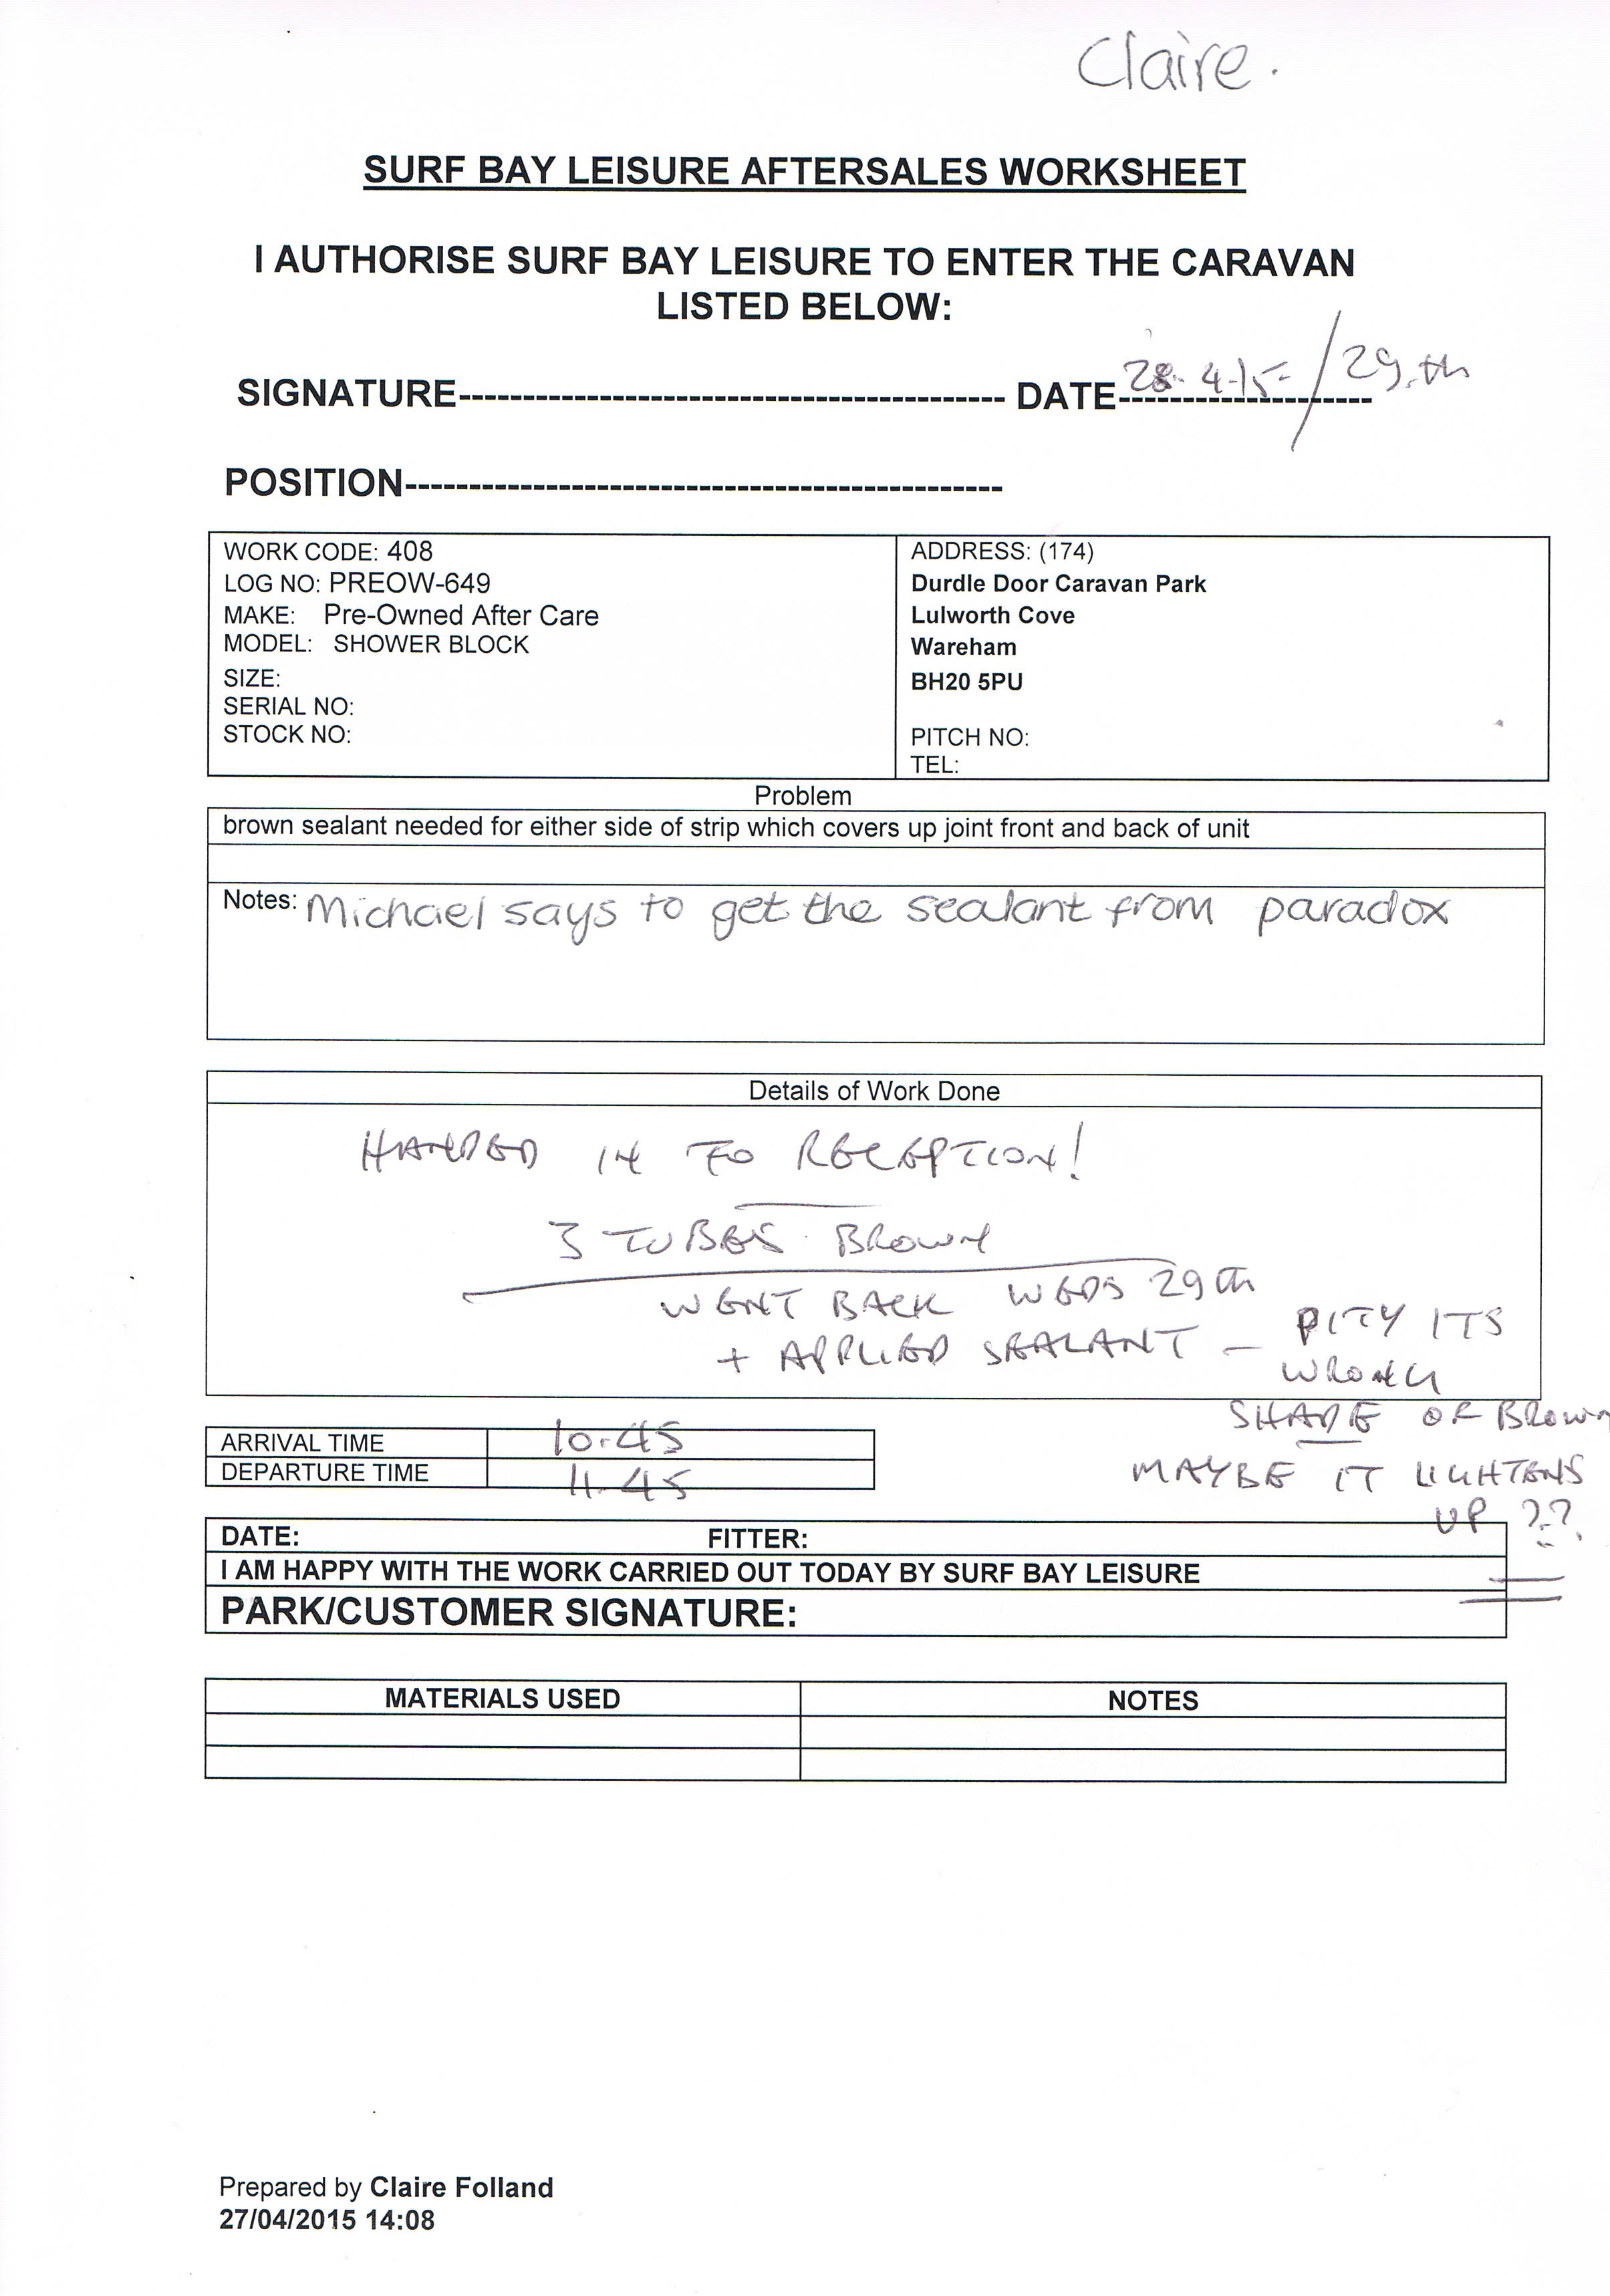 Claire.
SURF BAY LEISURE AFTERSALES WORKSHEET
I AUTHORISE SURF BAY LEISURE TO ENTER THE CARAVAN
LISTED BELOW:
SIGNATURE------------------------------------------- DATE-------------------- 28.4.15 / 29.th
POSITION-----------------------------------------------
WORK CODE: 408
LOG NO: PREOW-649
MAKE: Pre-Owned After Care
MODEL: SHOWER BLOCK
SIZE:
SERIAL NO:
STOCK NO:
ADDRESS: (174)
Durdle Door Caravan Park
Lulworth Cove
Wareham
BH20 5PU
PITCH NO:
TEL:
Problem
brown sealant needed for either side of strip which covers up joint front and back of unit
Notes: Michael says to get the sealant from paradox
Details of Work Done
HANDED IN TO RECEPTION!
3 TUBES BROWN
WENT BACK WEDS 29th
+ APPLIED SEALANT — PITY ITS
WRONG
SHADE OF BROWN
MAYBE IT LIGHTENS
UP ??
ARRIVAL TIME 10.45
DEPARTURE TIME 11.45
DATE: FITTER:
I AM HAPPY WITH THE WORK CARRIED OUT TODAY BY SURF BAY LEISURE
PARK/CUSTOMER SIGNATURE:
MATERIALS USED NOTES
Prepared by Claire Folland
27/04/2015 14:08